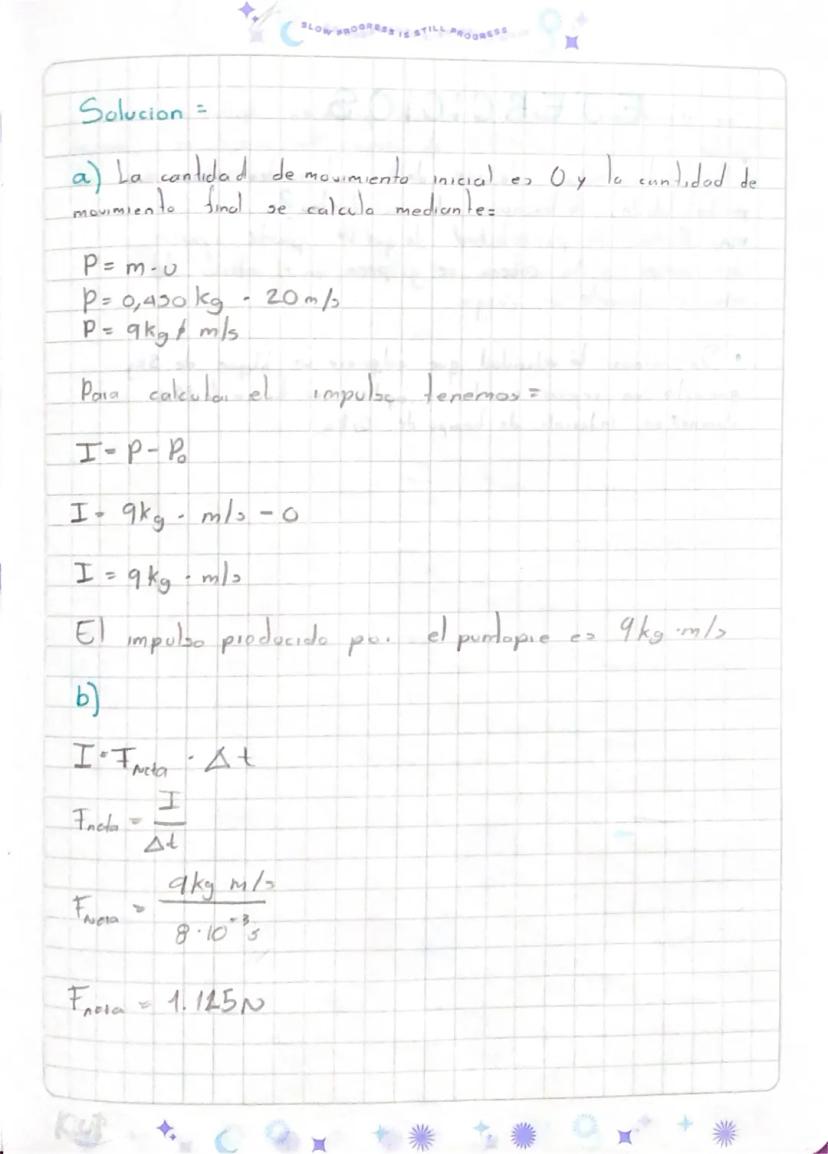 SLOW PROGRESS IS STILL PROGRESS
Solucion =
a) La cantidad de movimiento inicial es 0 y la cantidad de
movimiento final se calcula mediante=
P = m · v
P = 0,450 kg · 20 m/s
P = 9 kg · m/s
Para calcular el impulso tenemos =
I = P - P₀
I = 9kg · m/s - 0
I = 9 kg · m/s
El impulso producido por el puntapie es 9 kg · m/s
b)
I = Fneta · Δt
Fneta = I / Δt
Fneta = 9kg m/s / 8 · 10⁻³s
Fneta = 1.125N